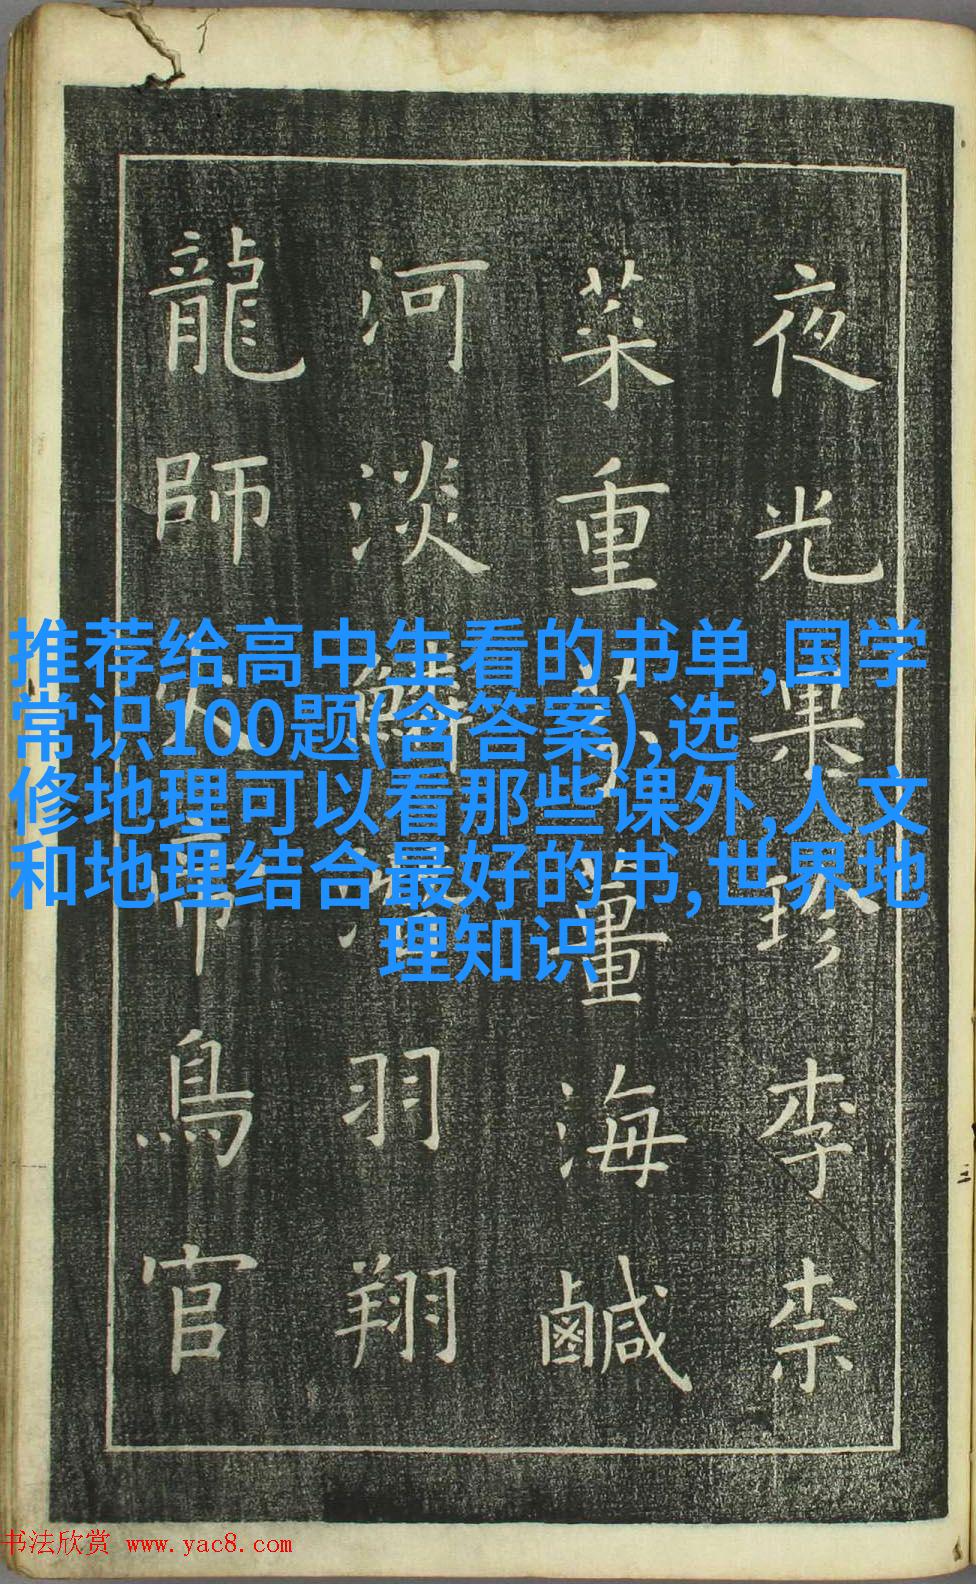 推荐给高中生看的书单,国学
常识100题(含答案),选
修地理可以看那些课外,人文
和地理结合最好的书,世界地
理知识
夜光果珍李柰
菜重芥薑海鹹
河淡鱗潛羽翔
龍師火帝鳥官
书法欣赏 www.yac8.com